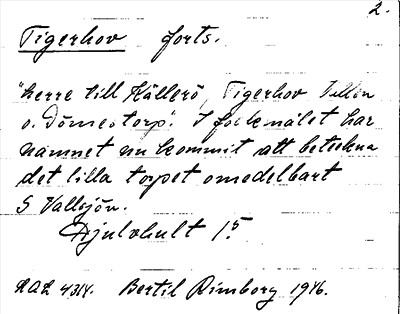 2.
Tigerhov forts.
"herre till Källerö, Tigerhov Tillin
o. Dömestorp". I folkmålet har
namnet nu kommit att beteckna
det lilla torpet omedelbart
S Vallsjön.
Hjulhult 1⁵
4314. Bertil Rimborg 1946.